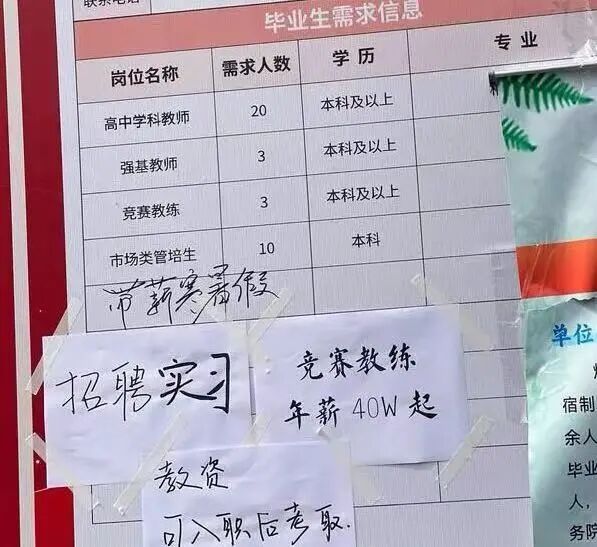 联系电话
毕业生需求信息
岗位名称 需求人数 学历 专业
高中学科教师 20 本科及以上
强基教师 3 本科及以上
竞赛教练 3 本科及以上
市场类管培生 10 本科
带薪寒暑假
招聘实习
竞赛教练
年薪40W起
教资
可入职后考取.
单位
宿制
余人
毕业
人，
务院